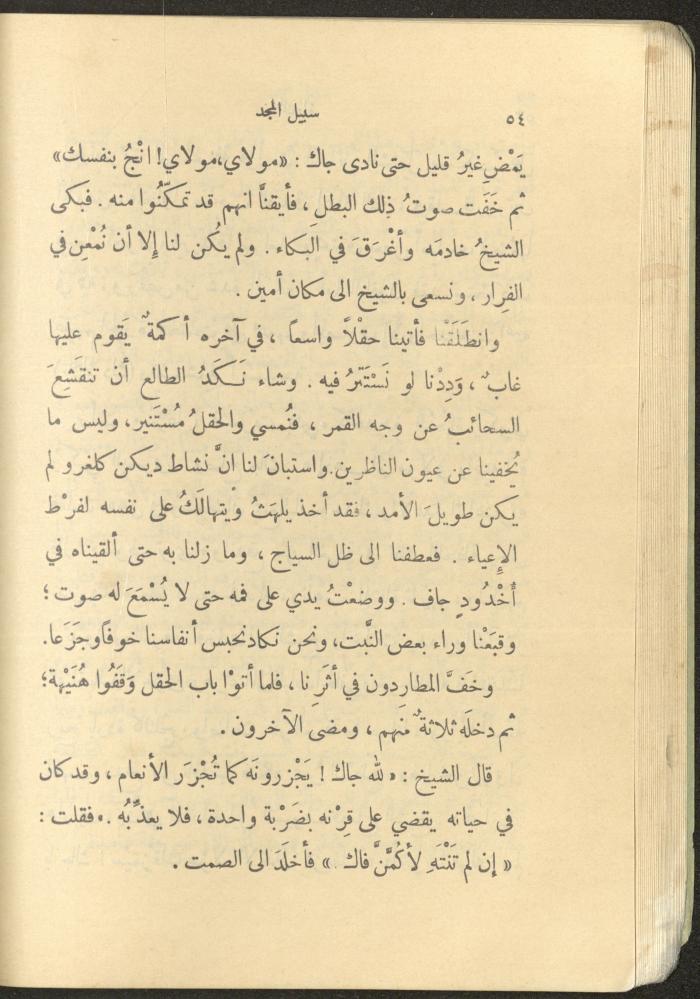 ٥٤
سبيل المجد
يَمْضِ غيرُ قليل حتى نادى جاك : «مولاي، مولاي! انْجُ بنفسك»
ثم خَفَت صوتُ ذلك البطل ، فأيقنَّا انهم قد تمكَّنُوا منه . فبكى
الشيخُ خادمَه وأغْرَقَ في البكاء . ولم يكُن لنا إلا أن نُمْعِن في
الفِرار ، ونسعى بالشيخ الى مكان أمين .
وانطَلَقْنا فأتينا حقْلاً واسعاً ، في آخره أكمةٌ يَقوم عليها
غابٌ ، وَدِدْنا لو نَسْتَتِرُ فيه . وشاء نَكَدُ الطالع أن تنقشِعَ
السحائبُ عن وجه القمر ، فنُمسي والحقلُ مُسْتَنير ، وليس ما
يُخفينا عن عيون الناظرين . واستبانَ لنا انَّ نشاط ديكن كلغرو لم
يكن طويلَ الأمد ، فقد أخذ يلهَثُ ويتهالَكُ على نفسه لفرْط
الإعياء . فعطفنا الى ظل السياج ، وما زلنا به حتى ألقيناه في
أُخْدُودٍ جاف . ووضعْتُ يدي على فمه حتى لا يُسْمَعَ له صوت ؛
وقبَعْنا وراء بعض النَّبت، ونحن نكاد نحبس أنفاسنا خوفاً وجَزَعا.
وخَفَّ المطاردون في أثَرِنا ، فلما أتوْا باب الحقل وَقَفُوا هُنَيْهة؛
ثم دخلَه ثلاثةٌ منهم ، ومضى الآخرون .
قال الشيخ : «لله جاك ! يَجْزرونَه كما تُجْزَر الأنعام ، وقد كان
في حياته يقضي على قِرْنه بضَرْبة واحدة ، فلا يعذِّبُه .» فقلت :
« إن لم تَنْتَهِ لأكُمَّنَّ فاك .» فأخلَدَ الى الصمت .